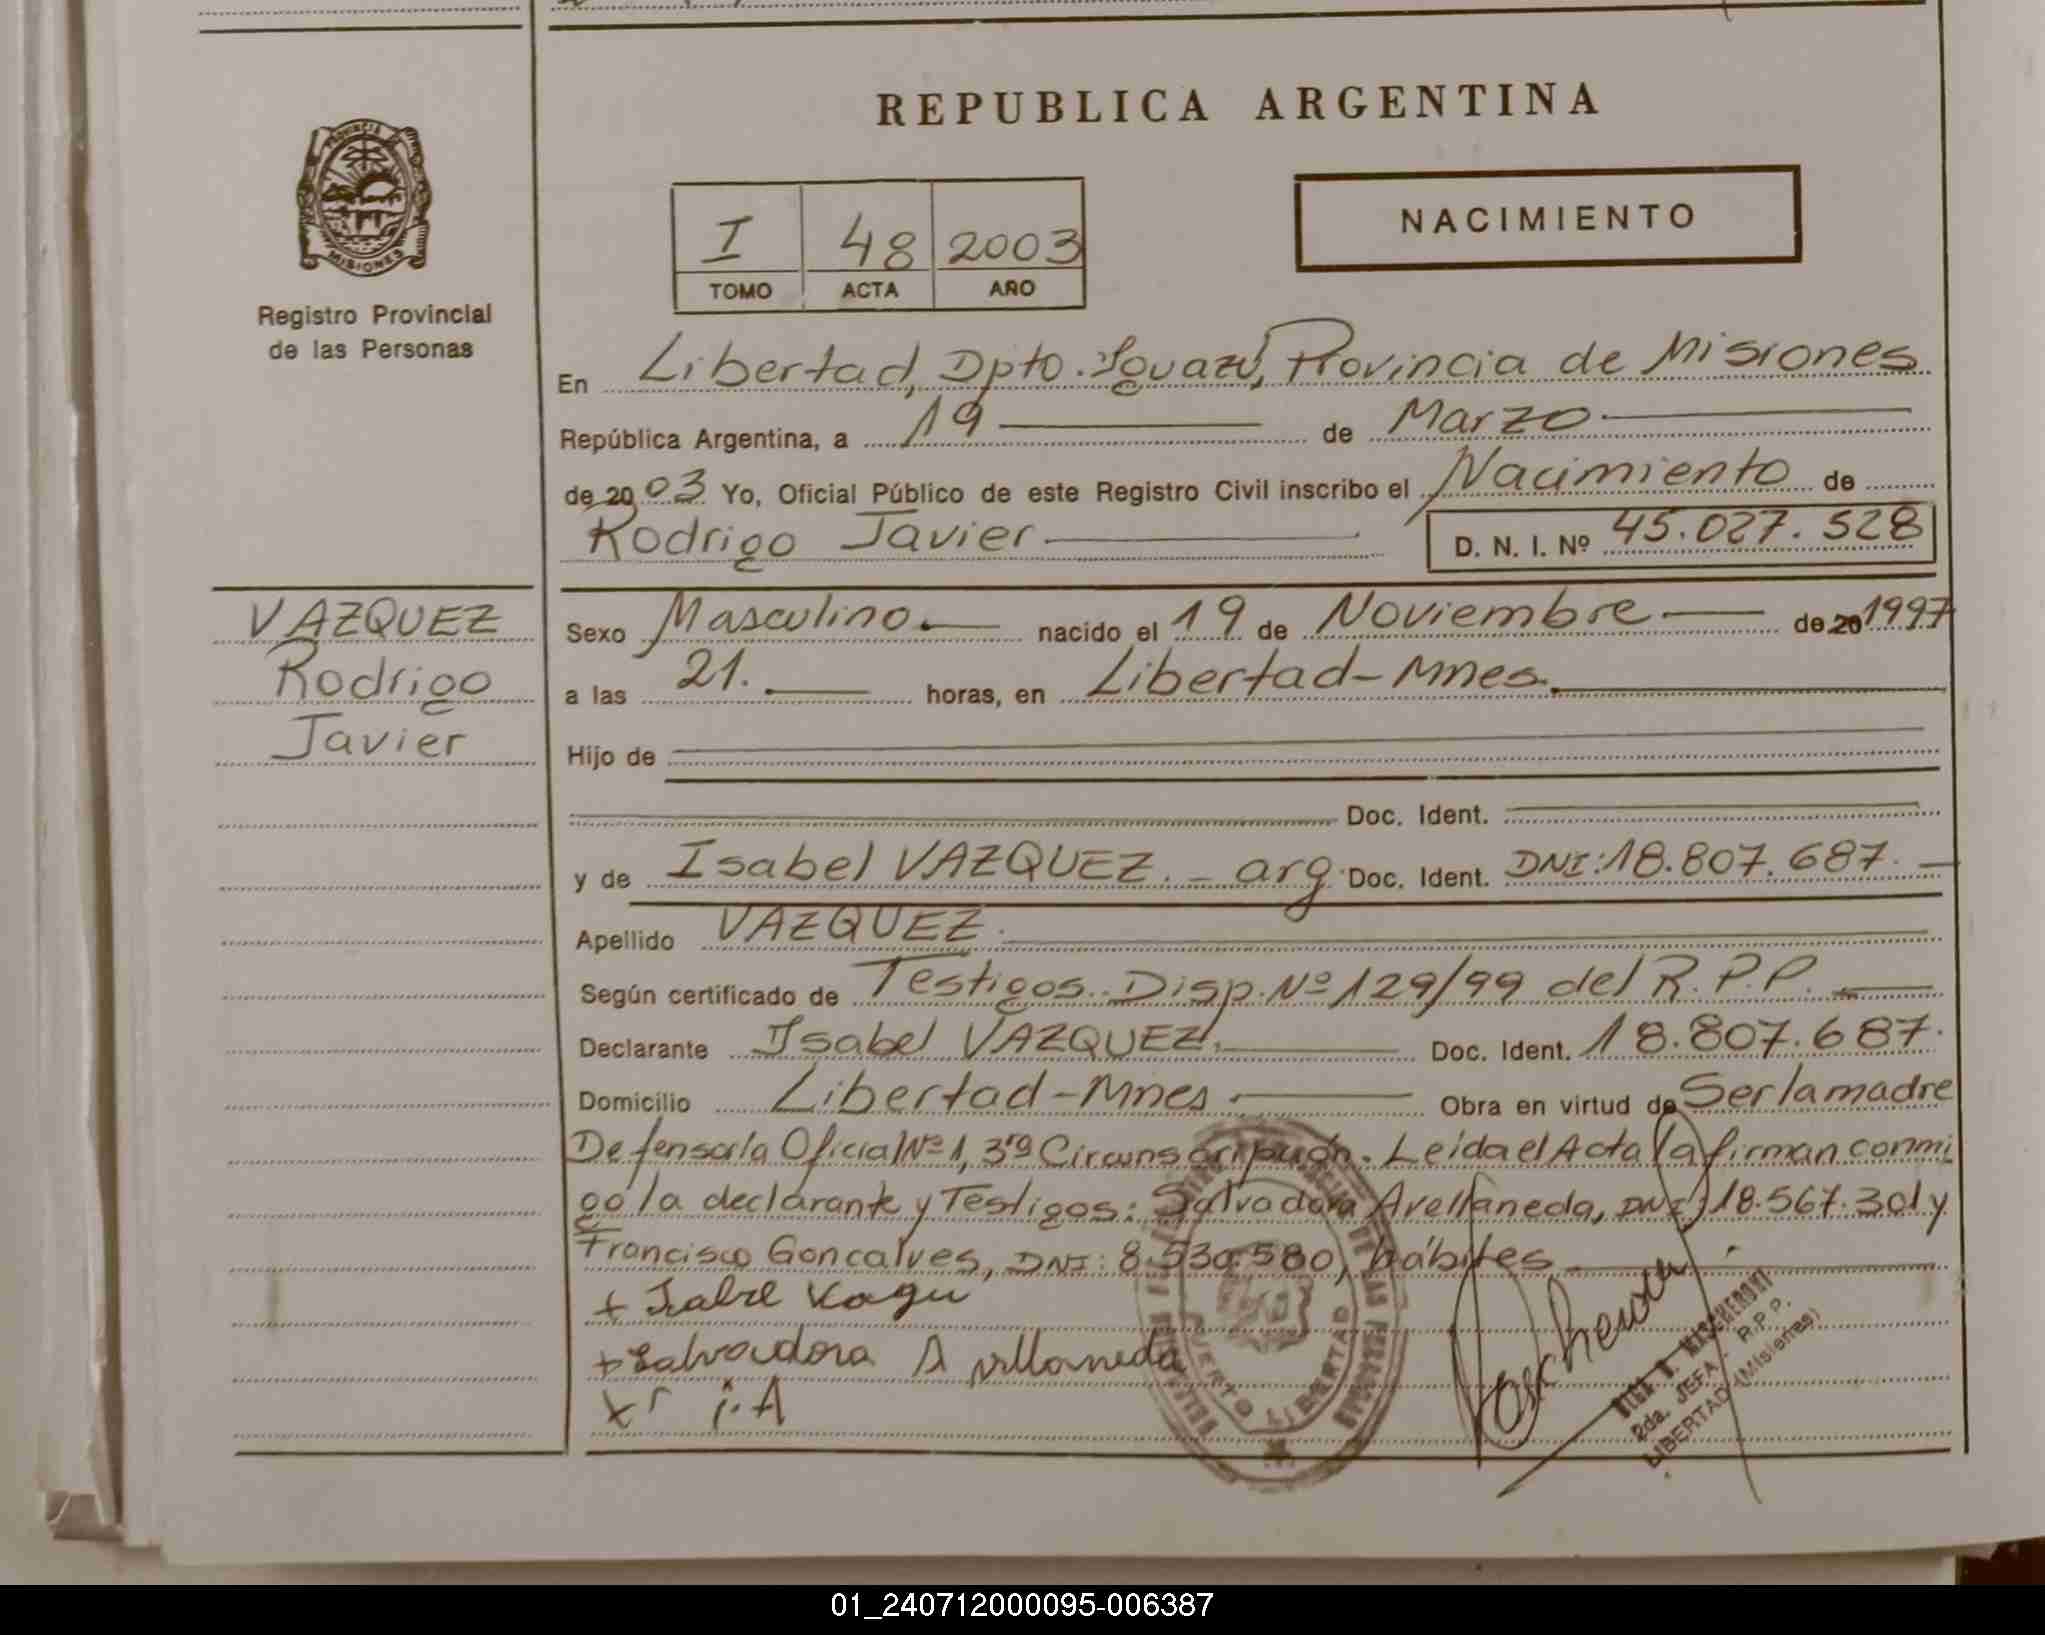 REPUBLICA ARGENTINA
PROVINCIA DE
MISIONES
Registro Provincial
de las Personas
NACIMIENTO
I 48 2003
TOMO ACTA AÑO
En Libertad, Dpto. Iguazú, Provincia de Misiones
República Argentina, a 19 de Marzo
de 2003 Yo, Oficial Público de este Registro Civil inscribo el Nacimiento de
Rodrigo Javier D. N. I. Nº 45.027.528
VAZQUEZ
Rodrigo
Javier
Sexo Masculino. nacido el 19 de Noviembre de 20 1997
a las 21. horas, en Libertad-Mnes.
Hijo de
Doc. Ident.
y de Isabel VAZQUEZ. - arg. Doc. Ident. DNI: 18.807.687.
Apellido VAZQUEZ.
Según certificado de Testigos. Disp. Nº 129/99 del R.P.P.
Declarante Isabel VAZQUEZ. Doc. Ident. 18.807.687.
Domicilio Libertad-Mnes. Obra en virtud de Ser la madre
Defensoría Oficial Nº 1, 3ra Circunscripción. Leída el Acta la firman conmi
go la declarante y Testigos: Salvadora Avellaneda, DNI: 18.567.301 y
Francisco Goncalves, DNI: 8.530.580, hábiles
+ Salvadora
PUERTO LIBERTAD
2da. JEFA - R.P.P.
LIBERTAD (Misiones)
01_240712000095-006387